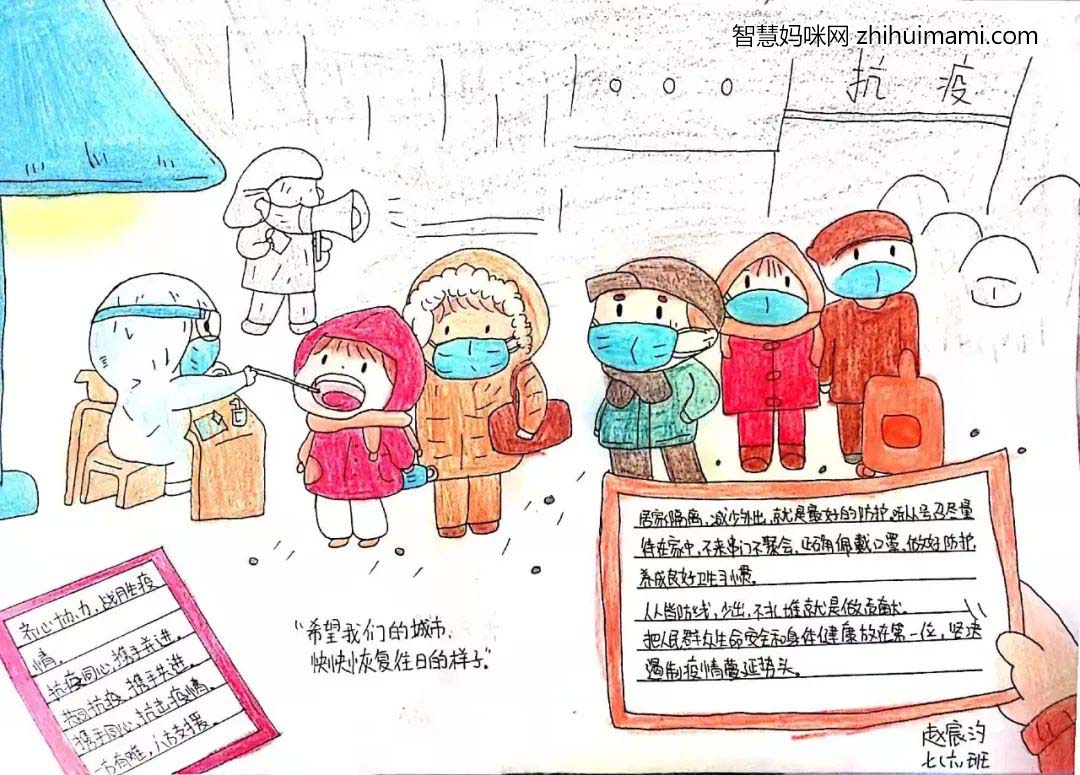 智慧妈咪网 zhihuimami.com
抗 疫
居家隔离,减少外出,就是最好的防护,听从号召尽量
待在家中,不来串门不聚会,正确佩戴口罩,做好防护,
养成良好卫生习惯。
人人皆防线,少出,不扎堆就是做贡献。
把人民群众生命安全和身体健康放在第一位,坚决
遏制疫情蔓延势头。
齐心协力,战胜疫
情。
抗疫同心,携手并进。
共同抗疫,携手共进。
携手同心,抗击疫情。
一方有难,八方支援。
“希望我们的城市,
快快恢复往日的样子”
赵宸汐
七(六)班